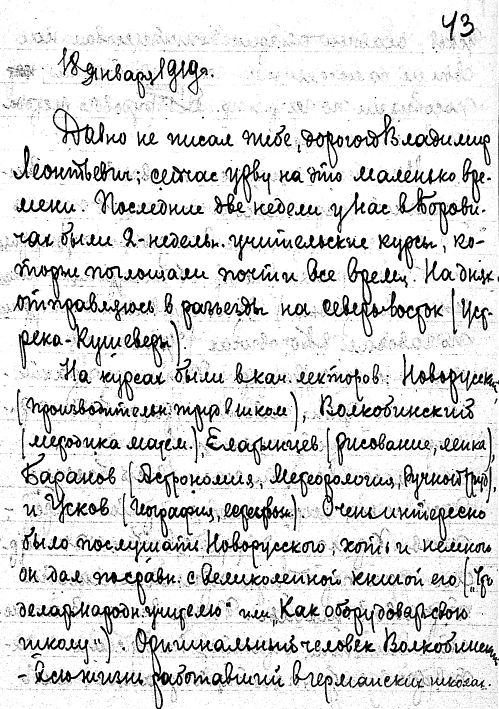 43
18 января 1919 г.
Давно не писал тебе, дорогой Владимир
Леонтьевич; сейчас урву на это маленько вре-
мени. Последние две недели у нас в Борови-
чах были 2-недельн. учительские курсы, ко-
торые поглощали почти все время. На днях
отправляюсь в разъезды на северо-восток (Уст-
река-Кушеверы)
На курсах были в кач. лекторов: Новорусск.
(производительн. труд в школе), Волкобинский
(методика матем.), Елатынцев (рисование, лепка),
Баранов (Астрономия, Метеорология, Ручной труд),
и Усков (География, естествозн.). Очень интересно
было послушать Новорусского, хоть и немного
он дал по сравн. с великолепной книгой его (
делать народн. учителю" или "Как оборудовать свою
школу"). Оригинальный человек Волкобинский
- всю жизнь работавший в германских школах.